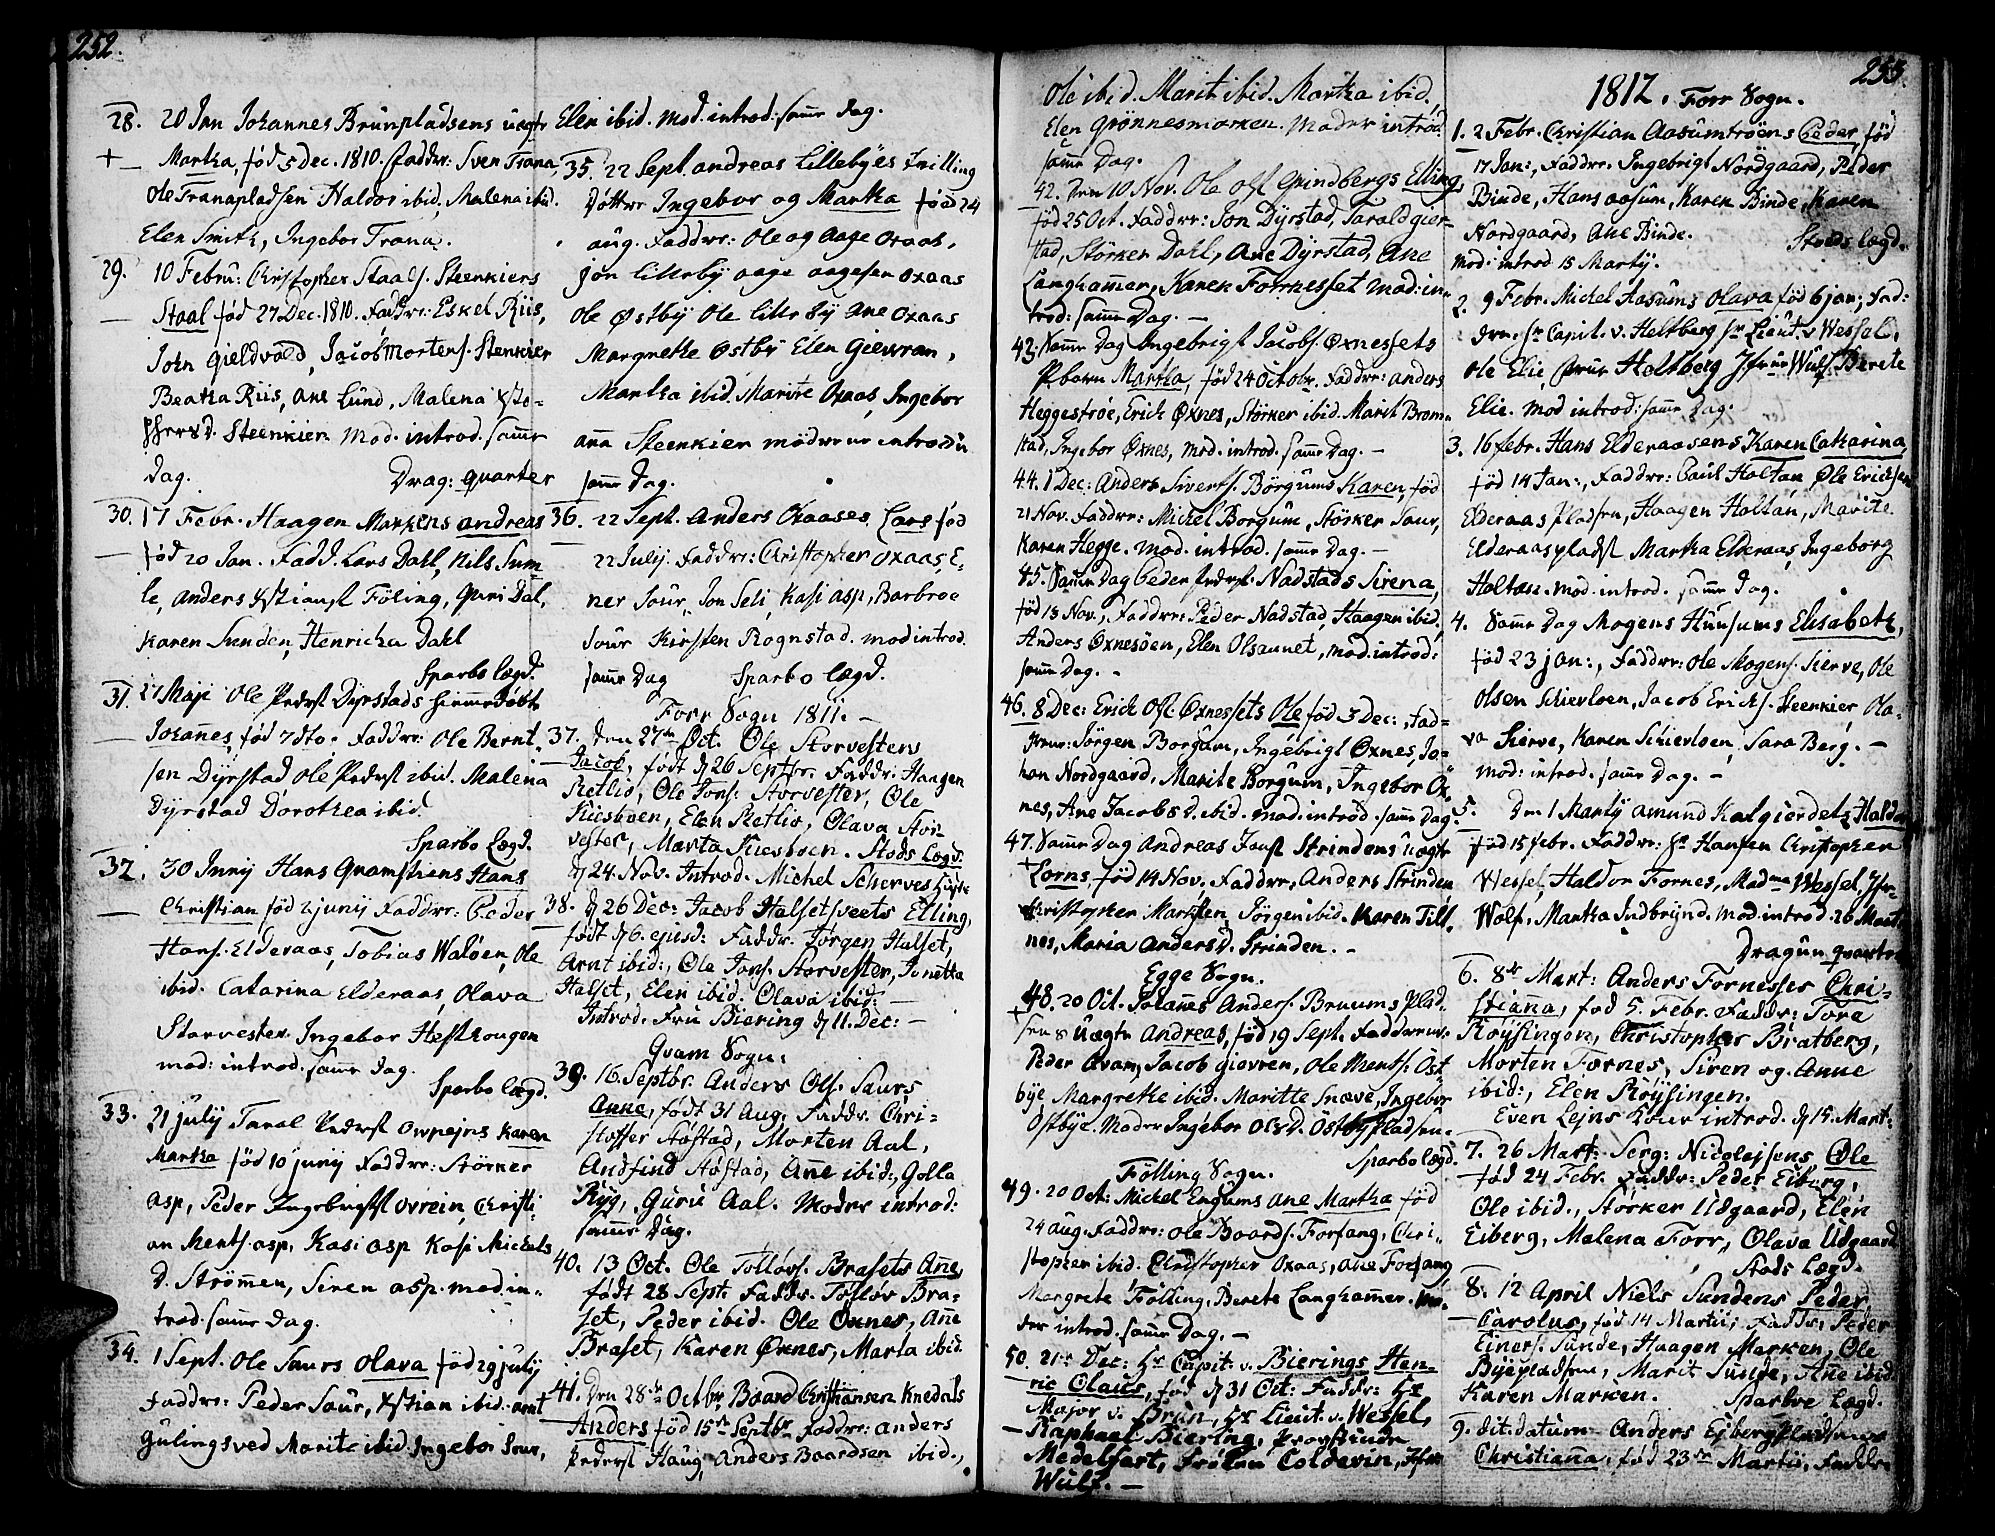 252.
28. 20 Jan Johannes Brunpladsens uægte
+ Martha, fød 5 Dec. 1810. Faddr: Sven Trana,
Ole Tranapladsen Haldor ibid, Malena ibid.
Elen Smith, Ingebor Trana.
29. 10 Febru: Christopher Staals. Steenkiers
Staal fød 27 Dec. 1810. Faddr: Eskel Riis,
John Gieldvald, Jacob Mortens. Stenkier
Beatha Riis, Ane Lund, Malena Xsto-
phersd. Steenkier Mod. introd. samme
Dag. Drag: quarter
30. 17 Febr. Haagen Markens Andreas
fød 20 Jan. Fadd. Lars Dahl, Nils Sum-
le, Anders Xstians Föling, Guri Dal,
Karen Sunden, Henricha Dahl
Sparbo lægd.
31. 27 Maji Ole Peders Dyrstads hiemmedøbt
Johannes, fød 7 dto. Faddr: Ole Bernt-
sen Dyrstad Ole Peders ibid. Malena
Dyrstad Dorothea ibid.
Sparbo Lægd.
32. 30 Junij Hans Quamshiens Hans
Christian fød 2 junij Faddr: Peder
Hans. Elderaas, Tobias Waløen, Ole
ibid. Catarina Elderaas, Olava
Storvester Ingebor Hefthougen
mod: introd. samme Dag.
Sparbo lægd.
33. 21 julij Taral Peders Owrejns Karen
Martha fød 10 junij Faddr: Størker
asp, Peder Ingebrigts Ovrein, Christi-
an Ments. asp, Kasi asp Kasi Michels
D. Strömen, Siren asp. mod. in-
trod. samme Dag.
34. 1 Sept. Ole Saurs Olava fød 29 julij
Faddr: Peder Saur, Xstian ibid. arnt
Gulingsved Marite ibid. Ingebor Saur,
Elen ibid. Mod. introd: samme Dag.
35. 22 Sept. Andreas Lillebyes Tvilling
Døttre Ingebor og Martha fød 24
aug. Faddrr: Ole og Aage Oxaas,
Jon Lilleby Aage Aagesen Oxaas
Ole Østby Ole Lilleby Ane Oxaas
Margrethe Østby Elen Gievran,
Martha ibid. Marite Oxaas, Ingebor
ana Steenkier mødrene introdu
samme Dag.
36. 22 Sept. Anders Oxaases Lars fød
22 Julij. Faddrr: Christopher Oxaas, E-
ner Saur, Jon Seli Kasi asp, Barbroe
Saur Kirsten Rognstad. mod introd.
samme Dag Sparbo lægd.
Forr Sogn 1811.
37. Den 27de Oct. Ole Storvestens
Jacob, født d 26 Septbr. Faddr: Haagen
Retlio, Ole Jons. Storvester, Ole
Kiesboen, Elen Retlio, Olava Stor-
vester, Marta Kiesboen. Stods Lægd.
d 24. Nov. Introd. Michel Scherves Hustr
38. d 26 Dec: Jacob Halsetsveets Elling,
født d 6. ejusd: Faddr. Jørgen Halset,
Arnt ibid:, Ole Jons. Storvester, Jonetta
Halset, Elen ibid. Olava ibid: —
Introd. Fru Biering d 11. Dec: —
Qvam Sogn:
39. 16. Septbr. Anders Ols. Saurs
Anne, født 31 Aug. Faddr. Chri-
stoffer Støstad, Morten Aal,
Andfind Støstad, Anne ibid:, Golla
Ryg, Guru Aal. Modre introd:
samme Dag.
40. 13 Oct. Ole Tolløvs. Brasets Ane,
født 28 Sept: Faddr. Tolløv Bra-
set, Peder ibid. Ole Oxnes, Anne
Braset, Karen Øxnes, Marta ibid.
41. Den 28de Octbr. Baard Christiansen Knedals
Anders fød 15de Septbr Faddrr: Anders
Peders Haug, Anders Baardsen ibid.,
Ole ibid. Marit ibid. Martha ibid.,
Elen Grønnesmarken. Moder introd
samme Dag.
42. Den 10 Nov. Ole Ols. Grindbergs Elling,
fød 25 Oct. Faddrr: Jon Dyrstad, Tarald Gier-
stad, Størker Dahl, Ane Dyrstad, Ane
Langhamer, Karen Forrnesset Mod: in-
trod: samme Dag. —
43. Samme Dag Ingebrigt Jacobs. Oxnessets
Pbarn Martha, fød 24 Octobr. Faddrr: Anders
Heggestrøe, Erick Øxnes, Størker ibid. Marit Brom-
stad, Ingebor Øxnes, mod. introd. samme Dag. —
44. 1 Dec: Anders Siverts. Börgums Karen, fød
21 Nov. Faddrr: Michel Borgum, Störker Saur,
Karen Hegge. mod. introd. samme Dag. —
45. Samme Dag Peder Peders. Nadstads Sirena,
fød 13 Nov., Faddrr: Peder Nadstad, Haagen ibid.,
Anders Øxnesøen, Elen Olsaunet, mod. introd:
samme Dag. -
46. 8 Dec: Erick Ols. Øxnessets Ole fød 3 Dec:, Fad-
drene: Jörgen Borgum, Ingebrigt Øxnes, Jo-
han Nordgaard, Marite Borgum, Ingebor Öx-
nes, Ane Jacobs D. ibid. mod. introd. samme Dag.
47. Samme Dag Andreas Jons Strindens uægte
+ Lorns, fød 14 Nov. Faddrr, Anders Strinden
Christopher Markken Jörgen ibid. Karen Till-
nes, Maria Andersd. Strinden. -
Egge Sogn.
48. 20 Oct. Johannes Anders. Bruums Plad-
sens uægte Andreas, fød 19 Sept. Faddrene:
Peder Qvam, Jacob Giovren, Ole Ments. Öst-
bye Margrethe ibid. Maritte Snæve, Ingebor
Östbye. Moder Ingebor OlsD. Östbypladsen.
Sparbo lægd.
Fölling Sogn.
49. 20 Oct: Michel Engums Ane Martha fød
24 aug. Faddrr: Ole Baards. Forsang, Chri-
stopher ibid. Christopher Oxaas, Ane Forsang
Margrete Fölling, Berete Langhammer. Mo-
der introd. samme Dag. —
50. 21de Dec: Hr Capit: v. Bierings Hen-
ric Claus, fød d 31 Oct: Faddr: Hr
Major v. Brun, Hr Lieut. v. Wessel,
Raphael Biering, Provstinde
Medelfart, Frøken Coldevin, Jfrue
Wulf. —
253.
1812. Forr Sogn.
1. 2 Febr. Christian Aasumtröens Peder, fød
17 Jan:, Faddrr: Ingebrigt Nordgaard, Peder
Binde, Hans Aasum, Karen Binde, Karen
Nordgaard, Ane Binde. Stods lægd.
Mod: introd 15 Martij.
2. 9 Febr. Michel Aasums Olava fød 6 jan; Fad-
drr: Hr Capit. v. Heltberg Hr Lieut. v. Wessel,
Ole Elie, Frue Holtberg Jfrue Wulf. Berete
Elie. Mod introd: samme Dag.
3. 16 febr. Hans Elderaasens Karen Catharina,
fød 14 Jan:, Faddrr: Paul Holtan Ole Ericksen
Elderaas Pladsen, Haagen Holtan, Marite
Elderaasplads Martha Elderaas, Ingeborg
Holtan. mod. introd. samme Dag.
4. Samme Dag Mogens Huusums Elisabeth,
fød 23 jan:, Faddrr: Ole Mogens. Sierve, Ole
Olsen Schierloen, Jacob Ericks. Steenkier, Ola-
va Sierve, Karen Schierloen, Sara Berg. —
Mod: introd. samme Dag. —
5. Den 1 Martij Amund Kalgierdets Haldor
fød 15 febr. Faddrr: Hr Hansen Christopher
Wessel, Haldor Fornes, Madme Wessel, Jfr-
Wolf, Martha Indbrynd. Mod. introd. 26 Mart.
Dragun quarter
6. 8de Mart: Anders Fornesses Chri-
stianna, fød 5. Febr. Faddr: Tora
Røysingen, Christopher Bratberg,
Morten Fornes, Siren og Anne
ibid:, Elen Røysingen.
Even Lejns Kone introd. d 15. Mart:
7. 26 Mart: Serg: Nicolajsens Ole
fød 24 Febr. Faddr: Peder Eiberg,
Ole ibid., Størker Udgaard, Elen
Eiberg, Malena Forr, Olava Udgaard
Stods Lægd.
8. 12 April Niels Sundens Peder
Carolus, fød 14 Martii, Faddr: Peder
Einers. Sunde, Haagen Marken, Ole
Byepladsen, Marit Sunde, Anne ibid:
Karen Marken. Sparboe Lægd.
9. dit. datum Anders Ejbergpladsens
Christianna, fød 23de Martii, Faddr: